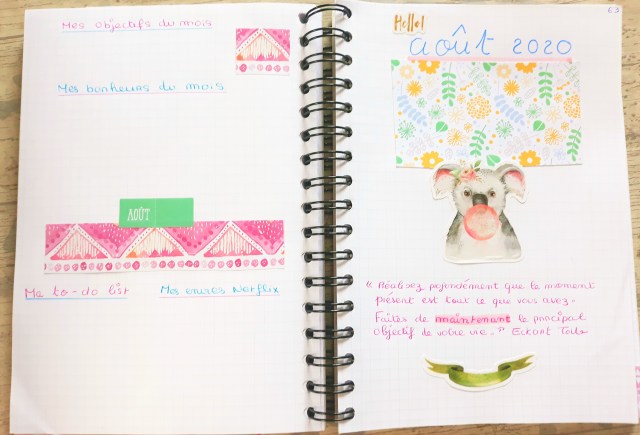 Mes objectifs du mois
Mes bonheurs du mois
AOÛT
Ma to-do list
Mes envies Netflix
Hello!
août 2020
« Réalisez profondément que le moment
présent est tout ce que vous avez.
Faites de maintenant le principal
objectif de votre vie. » Eckart Tolle